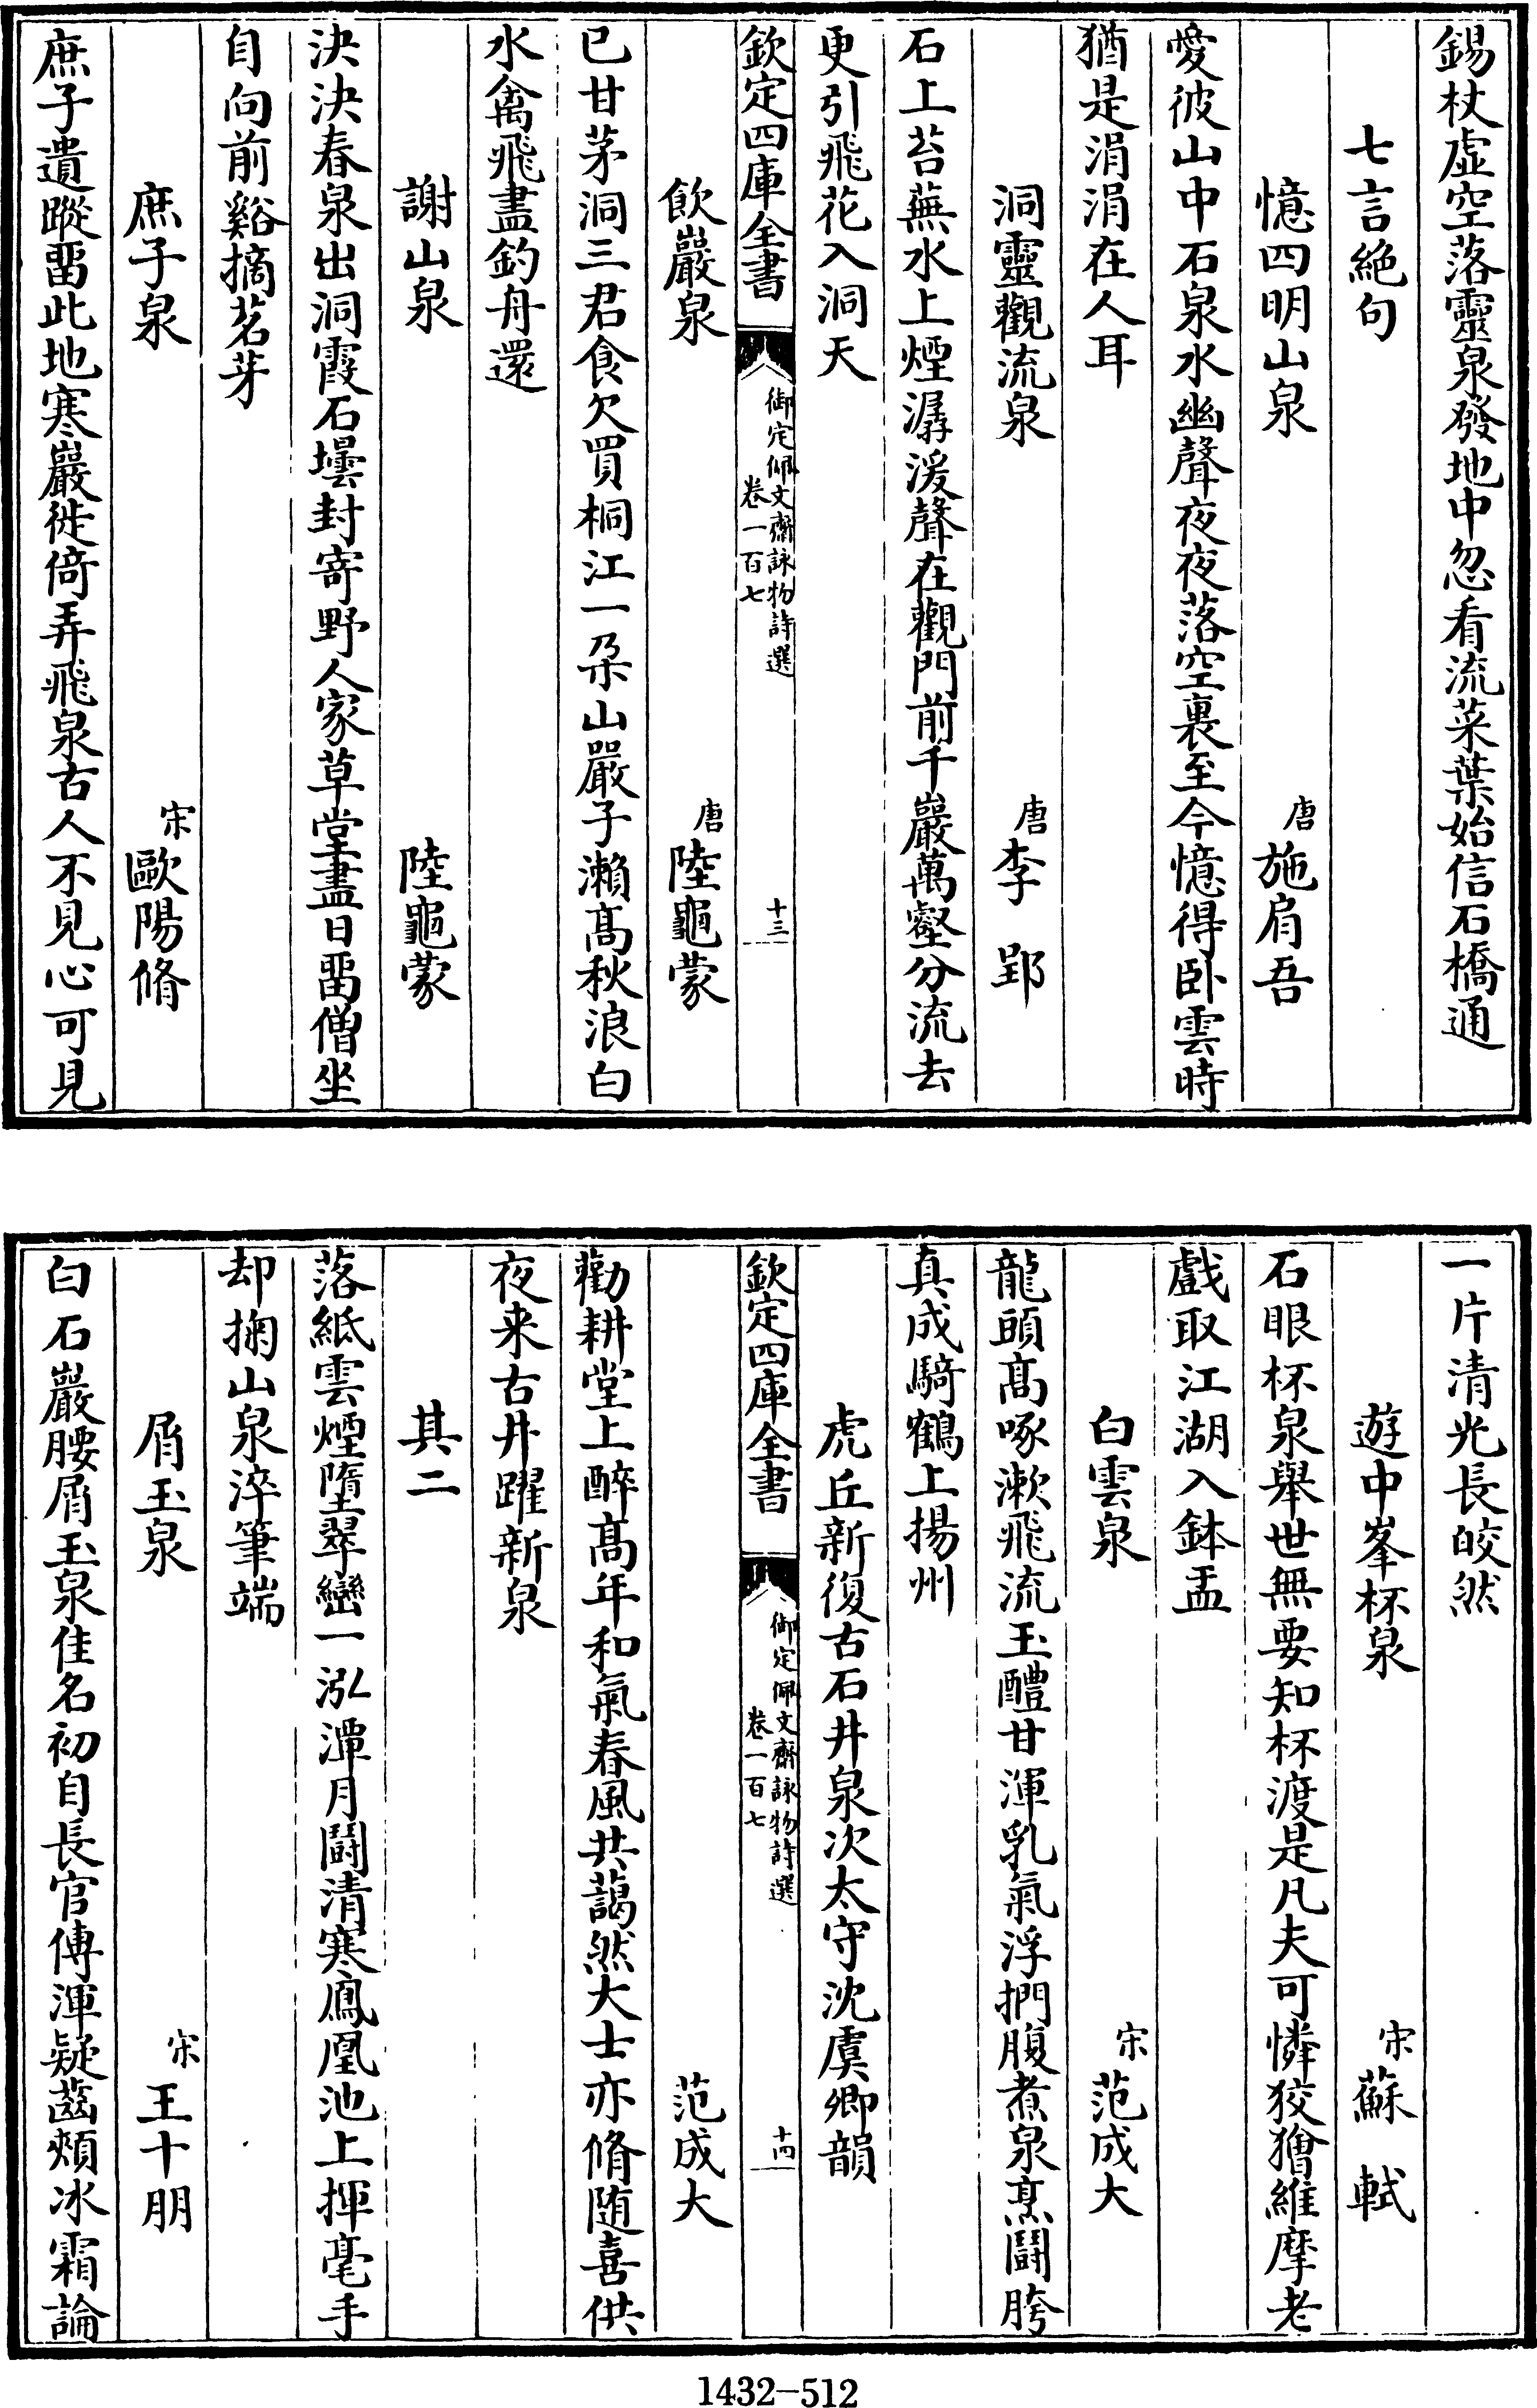 錫杖虚空落靈泉發地中忽看流菜葉始信石橋通
七言絶句
憶四明山泉 唐 施肩吾
愛彼山中石泉水幽聲夜夜落空裏至今憶得卧雲時
猶是涓涓在人耳
洞靈觀流泉 唐 李郢
石上苔蕪水上煙潺湲聲在觀門前千巖萬壑分流去
更引飛花入洞天
欽定四庫全書 御定佩文齋詠物詩選 卷一百七 十三
飲巖泉 唐 陸龜蒙
已甘茅洞三君食欠買桐江一朶山嚴子瀨髙秋浪白
水禽飛盡釣舟還
謝山泉 陸龜蒙
決決春泉出洞霞石壜封寄野人家草堂盡日畱僧坐
自向前谿摘茗芽
庶子泉 宋 歐陽脩
庶子遺蹤畱此地寒巖徙倚弄飛泉古人不見心可見
一片清光長皎然
遊中峯杯泉 宋 蘇軾
石眼杯泉舉世無要知杯渡是凡夫可憐狡獪維摩老
戲取江湖入鉢盂
白雲泉 宋 范成大
龍頭髙啄漱飛流玉醴甘渾乳氣浮捫腹煮泉烹鬭胯
真成騎鶴上揚州
虎丘新復古石井泉次太守沈虞卿韻
范成大
勸耕堂上醉髙年和氣春風共藹然大士亦脩随喜供
夜来古井躍新泉
其二
落紙雲煙墮翠巒一泓潭月鬭清寒鳳凰池上揮毫手
却掬山泉淬筆端
屑玉泉 宋 王十朋
白石巖腰屑玉泉佳名初自長官傳渾疑齒頰冰霜論
1432-512